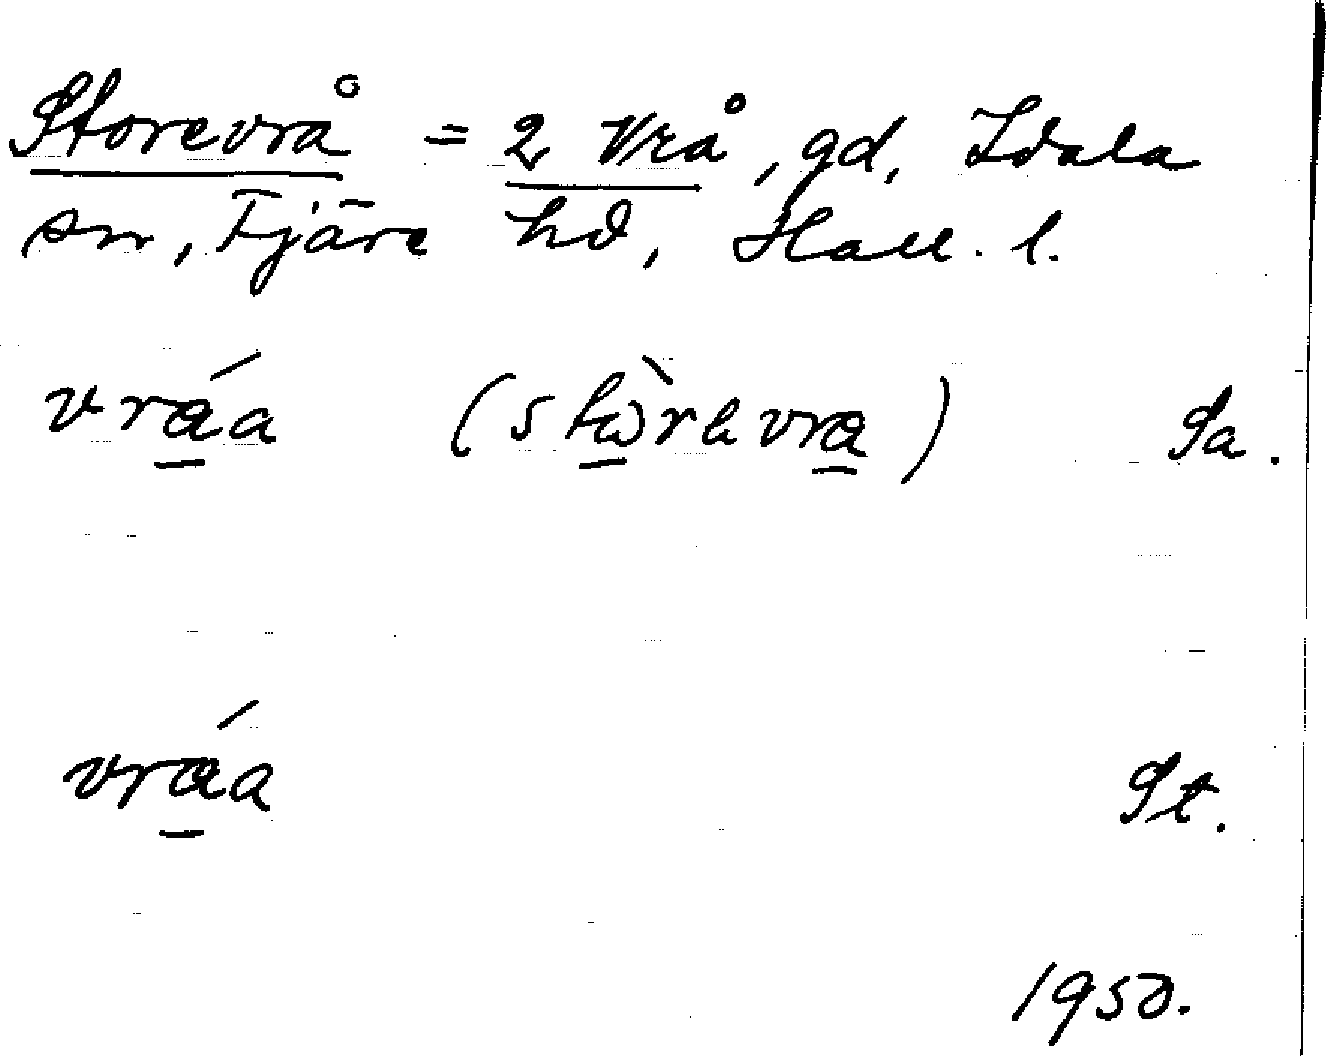 Storevrå = 2 Vrå, gd, Idala
sn, Fjäre hd, Hall. l.
vráa (stòrevra) Sa.
vráa St.
1950.